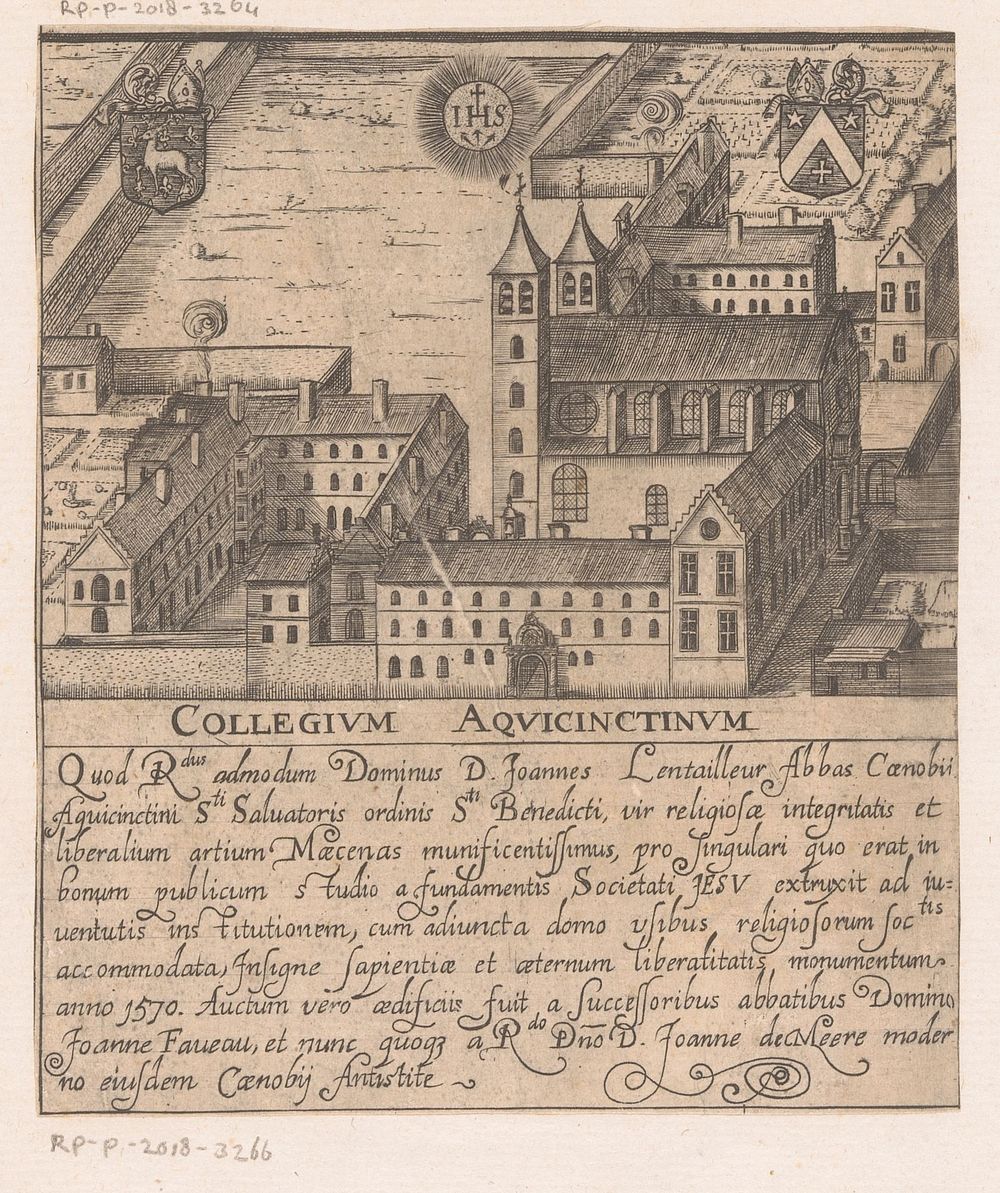 RP-P-2018-3264
IHS
COLLEGIVM AQVICINCTINVM
Quod Rdus admodum Dominus D. Joannes Lentailleur Abbas Cœnobii
Aquicinctini Sti Saluatoris ordinis Sti Benedicti, vir religiosæ integritatis et
liberalium artium Mæcenas munificentissimus, pro singulari quo erat in
bonum publicum studio a fundamentis Societati JESV extruxit ad iu=
uentutis institutionem, cum adiuncta domo vsibus religiosorum soctis
accommodata, Insigne sapientiæ et æternum liberalitatis monumentum
anno 1570. Auctum vero ædificiis fuit a successoribus abbatibus Domino
Joanne Faueau, et nunc quoqꝫ a Rdo Dn̄o D. Joanne de Meere moder
no eiusdem Cœnobij Antistite
RP-P-2018-3266